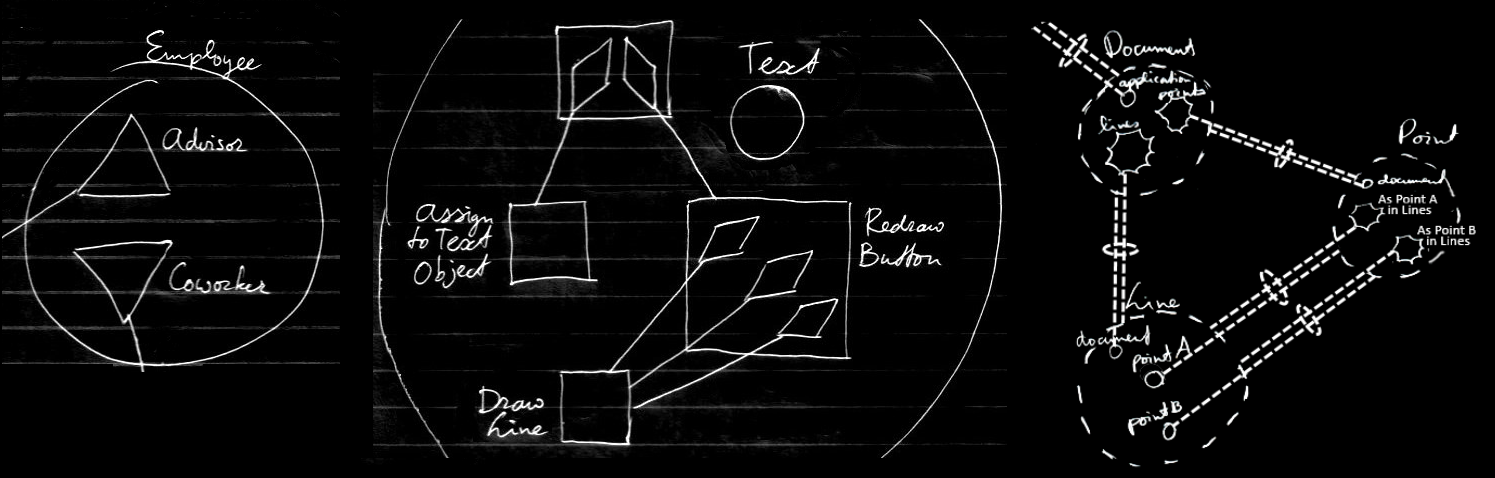 Employee
Advisor
Coworker
Text
Assign
to Text
Object
Redraw
Button
Draw
Line
Document
application
points
lines
Point
document
As Point A
in Lines
As Point B
in Lines
Line
document
point A
point B